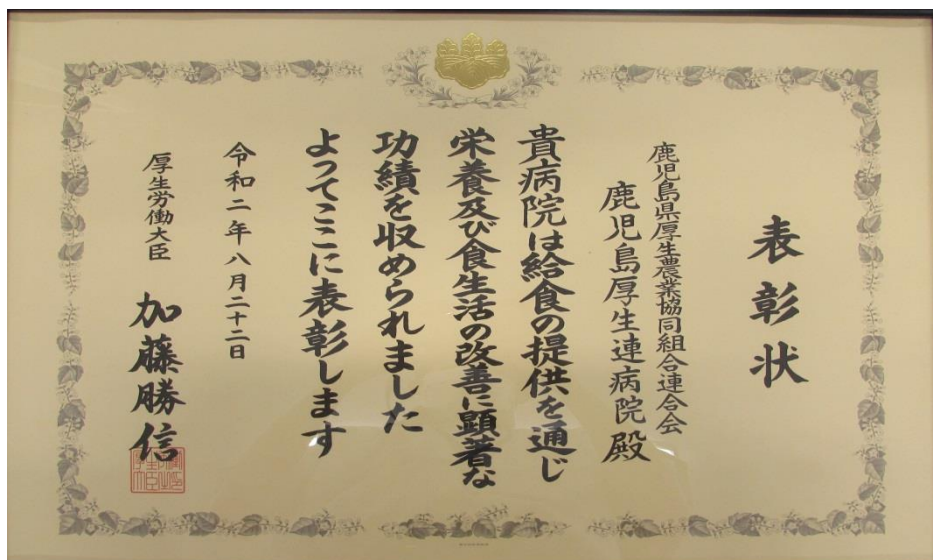 表彰状
鹿児島県厚生農業協同組合連合会
鹿児島厚生連病院殿
貴病院は給食の提供を通じ
栄養及び食生活の改善に顕著な
功績を収められました
よってここに表彰します
令和二年八月二十二日
厚生労働大臣 加藤勝信